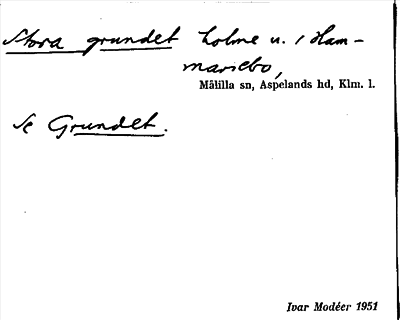 Stora grundet holme u. Ham-
marsebo,
Målilla sn, Aspelands hd, Klm. l.
Se Grundet.
Ivar Modéer 1951